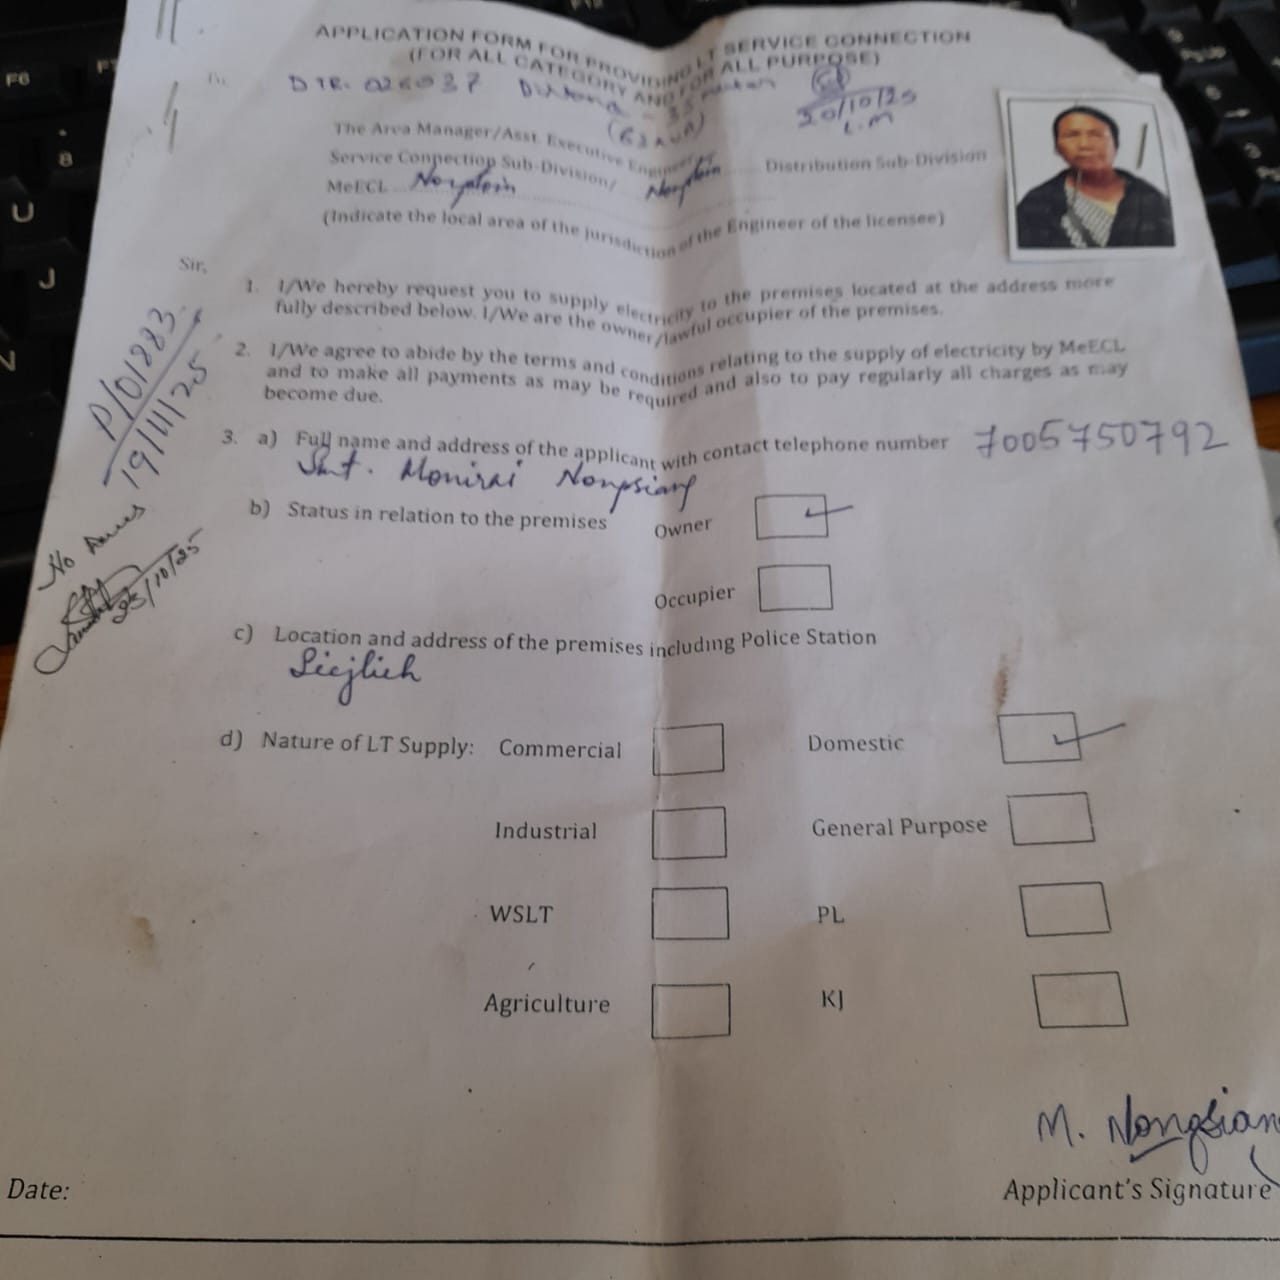 APPLICATION FORM FOR PROVIDING LT SERVICE CONNECTION
(FOR ALL CATEGORY AND FOR ALL PURPOSE)
To,
DTR. 026037
(63 KVA)
20/10/25
L.M
The Area Manager/Asst. Executive Engineer
Service Connection Sub-Division/ Nongstoin Distribution Sub-Division
MeECL Nongstoin
(Indicate the local area of the jurisdiction of the Engineer of the licensee)
Sir,
1. I/We hereby request you to supply electricity to the premises located at the address more
fully described below. I/We are the owner/lawful occupier of the premises.
2. I/We agree to abide by the terms and conditions relating to the supply of electricity by MeECL
and to make all payments as may be required and also to pay regularly all charges as may
become due.
P/01883
19/11/25
3. a) Full name and address of the applicant with contact telephone number 7005750792
Smt. Monirai Nongsiang
b) Status in relation to the premises Owner
Occupier
No
25/10/25
c) Location and address of the premises including Police Station
Siejlieh
d) Nature of LT Supply: Commercial Domestic
Industrial General Purpose
WSLT PL
Agriculture KJ
M. Nongsian
Date: Applicant's Signature
F6
8
U
J
N